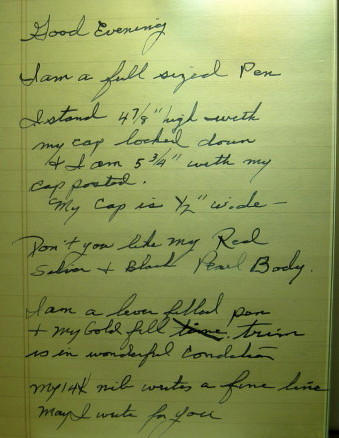 Good Evening
I am a full sized Pen
I stand 4 7/8" high with
my cap locked down
& I am 5 3/4" with my
cap posted.
My Cap is 1/2" wide -
Don't you like my Red
Silver & Black Pearl Body.
I am a lever filled pen
& my Gold fill trim
is in wonderful condition
My 14K nib writes a fine line
May I write for you